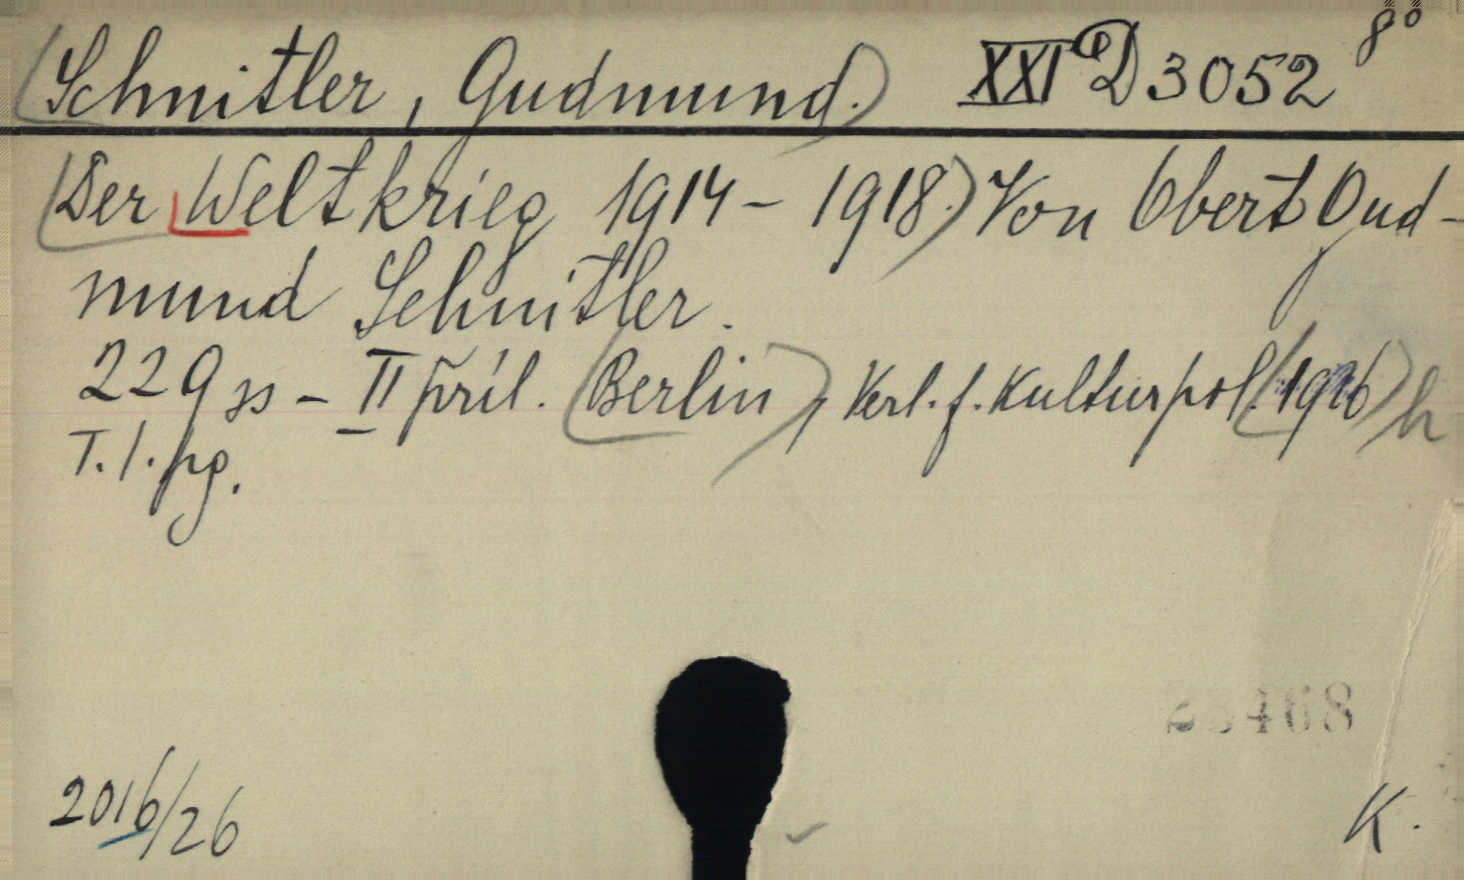 (Schnitler, Gudmund.) XXI D 3052 8°
(Der Weltkrieg 1914 - 1918.) Von Oberst Gud-
mund Schnitler.
229 ss - II příl. (Berlin), Verl. f. Kulturpol. (1926) h
T. l. pg.
468
2016/26
K.